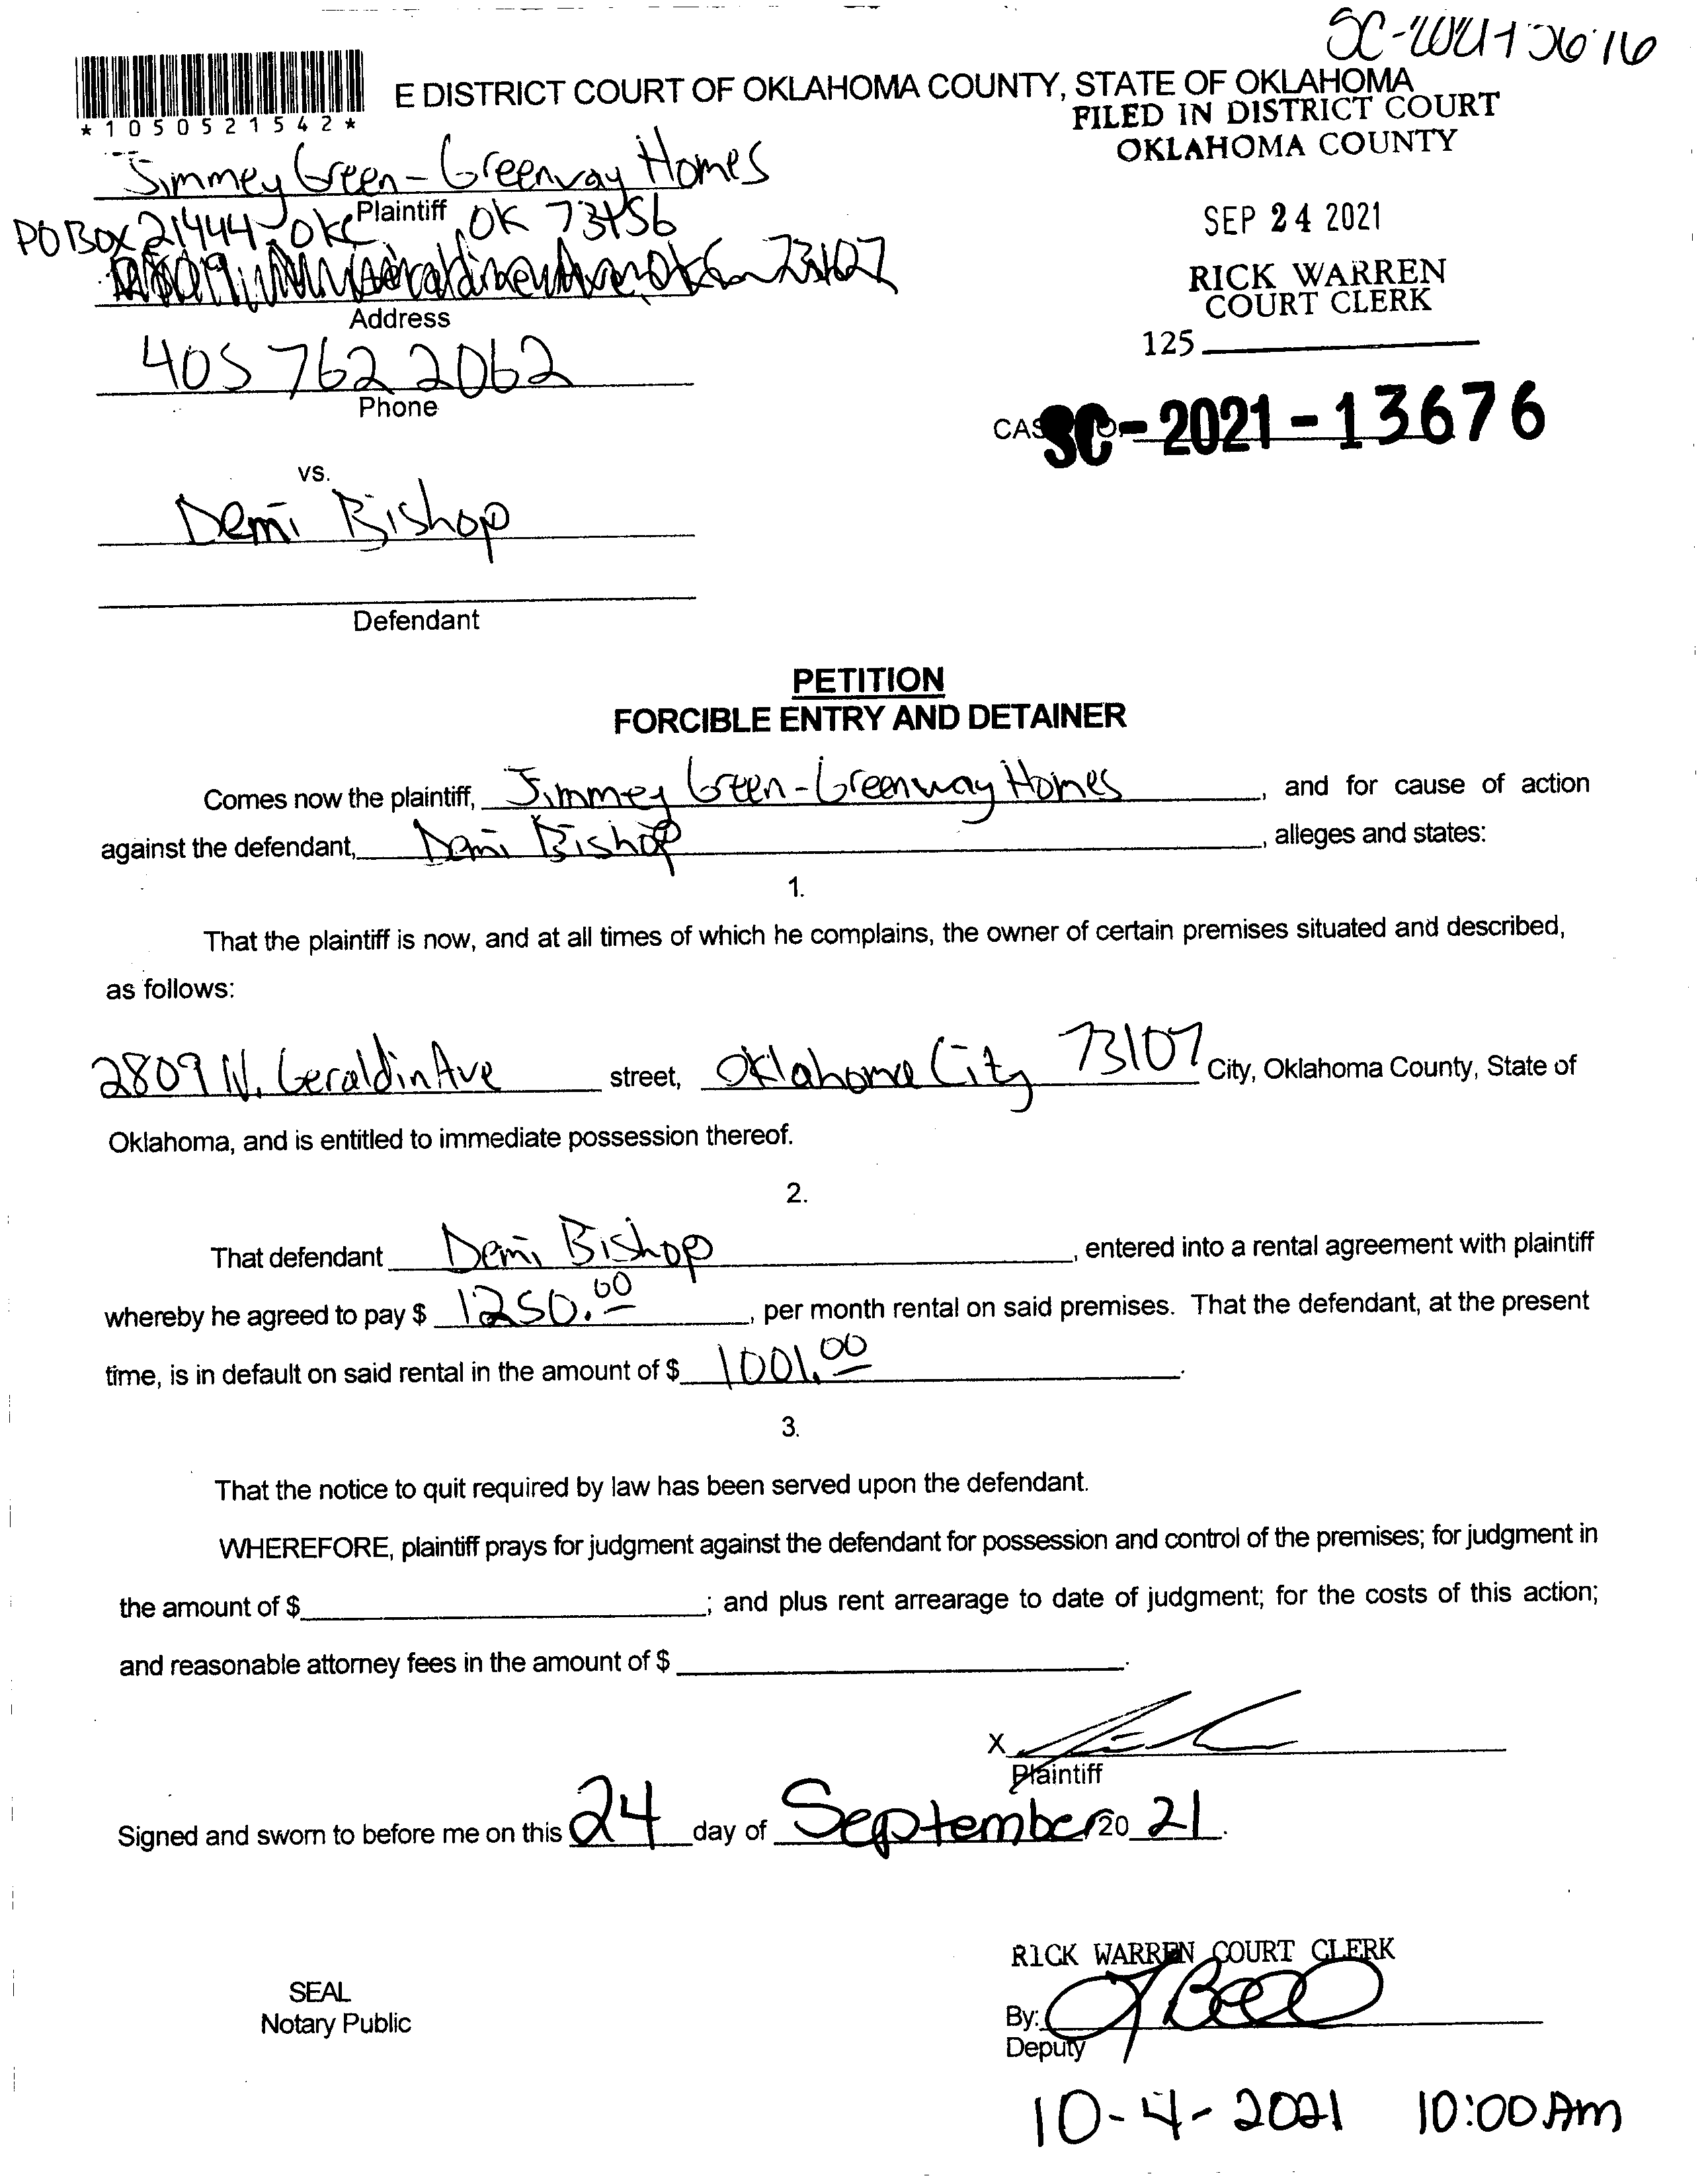 SC-2021-13676
*1050521542*
E DISTRICT COURT OF OKLAHOMA COUNTY, STATE OF OKLAHOMA
FILED IN DISTRICT COURT
OKLAHOMA COUNTY
Jimmey Green-Greenway Homes
Plaintiff
PO Box 21444 OKC OK 73156
2809 N Geraldine Ave OKC 73107
Address
SEP 24 2021
RICK WARREN
COURT CLERK
125
405 762 2062
Phone
SC-2021-13676
vs.
Demi Bishop
Defendant
PETITION
FORCIBLE ENTRY AND DETAINER
Comes now the plaintiff, Jimmey Green-Greenway Homes, and for cause of action
against the defendant, Demi Bishop, alleges and states:
1.
That the plaintiff is now, and at all times of which he complains, the owner of certain premises situated and described,
as follows:
2809 N. Geraldin Ave street, Oklahoma City 73107 City, Oklahoma County, State of
Oklahoma, and is entitled to immediate possession thereof.
2.
That defendant Demi Bishop, entered into a rental agreement with plaintiff
whereby he agreed to pay $ 1250.00, per month rental on said premises. That the defendant, at the present
time, is in default on said rental in the amount of $ 1001.00.
3.
That the notice to quit required by law has been served upon the defendant.
WHEREFORE, plaintiff prays for judgment against the defendant for possession and control of the premises; for judgment in
the amount of $; and plus rent arrearage to date of judgment; for the costs of this action;
and reasonable attorney fees in the amount of $.
X
Plaintiff
Signed and sworn to before me on this 24 day of September 20 21.
RICK WARREN COURT CLERK
SEAL
Notary Public
By:
Deputy
10-4-2021 10:00 Am